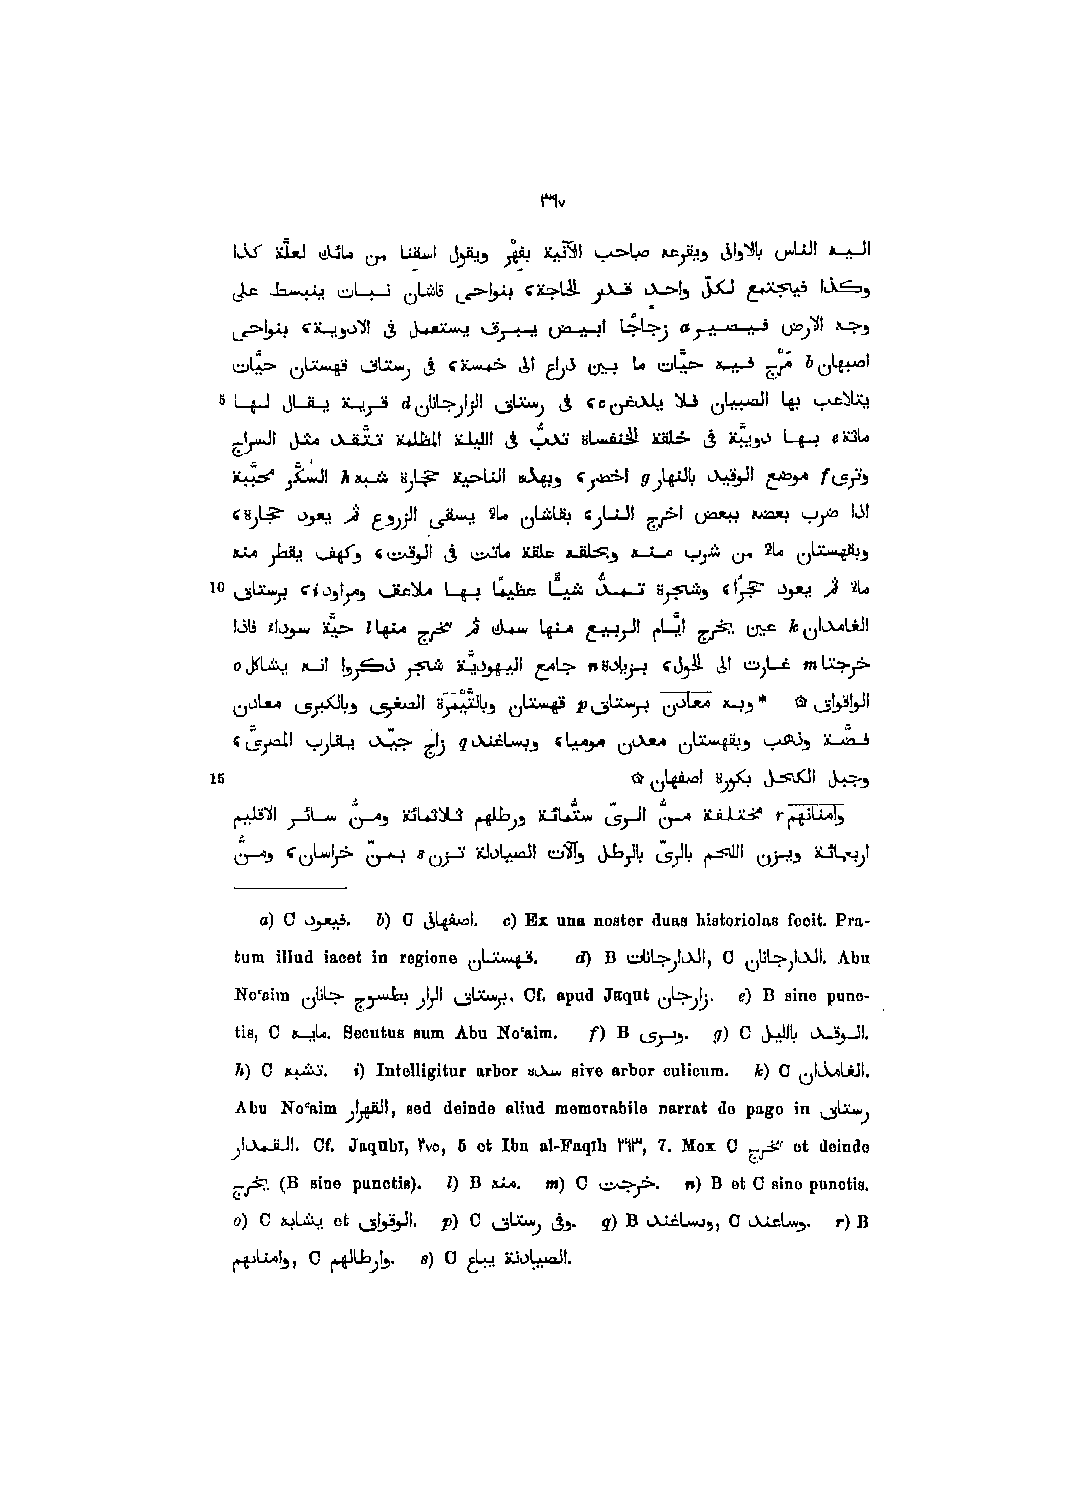 ٣٩٧
اليه الناس بالاوانى ويقرعه صاحب الآنية بفِهْر ويقول اسقنا من مائك لعلّة كذا
وكذا فيجتمع لكلّ واحد قدر الحاجة، بنواحى قاشان نبات ينبسط على
وجه الارض فيصير a زجاجًا ابيض يبرق يستعمل فى الادوية، بنواحى
اصبهان b مَرْج فيه حيّات ما بين ذراع الى خمسة، فى رستاق قهستان حيّات
5 يتلاعب بها الصبيان فلا يلدغن c، فى رستاق الزارجانان d قرية يقال لها
ماتة e بها دويبّة فى خلقة الخنفساة تدبّ فى الليلة المظلمة تتّقد مثل السراج
وترى f موضع الوقيد بالنهار g اخضر، وبهذه الناحية حجارة شبه h السُكّر محبّبة
اذا ضرب بعضه ببعض اخرج النار، بقاشان مآء يسقى الزروع ثم يعود حجارة،
وبقهستان مآء من شرب منه وبحلقه علقة ماتت فى الوقت، وكهف يقطر منه
10 مآء ثم يعود حجرًا، وشجرة تمدّ شيئًا عظيمًا بها ملاعق ومراود i، برستاق
الغامذان k عين يخرج ايّام الربيع منها سمك ثم تخرج منها l حيّة سوداء فاذا
خرجتا m غارت الى الحول، بزيادة n جامع اليهوديّة شجر ذكروا انه يشاكل o
الواقواق ۞ * وبه معادن برستاق p قهستان وبالتَّيْمَرة الصغرى وبالكبرى معادن
فضّة وذهب وبقهستان معدن مومياء، وبساغند q زاج جيّد يقارب المصرىّ،
15 وجبل الكحل بكورة اصفهان ۞
وامنانهم r مختلفة منّ الرىّ ستّمائة ورطلهم ثلاثمائة ومنّ سائر الاقليم
اربعمائة ويزن اللحم بالرىّ بالرطل وآلات الصيادلة تزن s بمنّ خراسان، ومنّ
a) C فيعود. b) C اصفهانى. c) Ex una noster duas historiolas fecit. Pra-
tum illud iacet in regione قهستان. d) B الدارجانات, C الدارجانان. Abu
No‘aim برستاق الرار بطسوج جانان. Cf. apud Jaqut زارجان. e) B sine punc-
tis, C مايه. Secutus sum Abu No‘aim. f) B ويرى. g) C الوقد بالليل.
h) C تشبه. i) Intelligitur arbor سده sive arbor culicum. k) C الغامذان.
Abu No‘aim القهرار, sed deinde aliud memorabile narrat de pago in رستاق
القمدار. Cf. Jaqubî, ٢٧٥, 5 et Ibn al-Faqîh ٢٦٣, 7. Mox C تخرج et deinde
يخرج (B sine punctis). l) B منه. m) C خرجت. n) B et C sine punctis.
o) C يشابه et الوقواق. p) C وفى رستاق. q) B وبساغند, C وساعند. r) B
وامنانهم, C وارطالهم. s) C الصيادنة يباع.